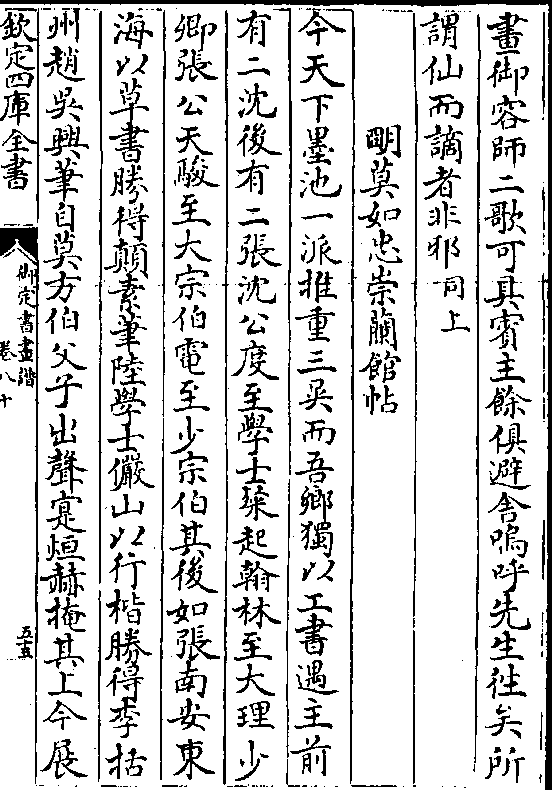 畫御容師二歌可具賓主餘俱避舍嗚呼先生徃矣所
謂仙而謫者非邪同上
明莫如忠崇蘭館帖
今天下墨池一派推重三吳而吾鄉獨以工書遇主前
有二沈後有二張沈公度至學士粲起翰林至大理少
卿張公天駿至大宗伯電至少宗伯其後如張南安東
海以草書勝得顛素筆陸學士儼山以行楷勝得李括
州趙吳興筆自莫方伯父子出聲寔烜赫掩其上今展
欽定四庫全書
御定書畫譜
卷八十
五十五